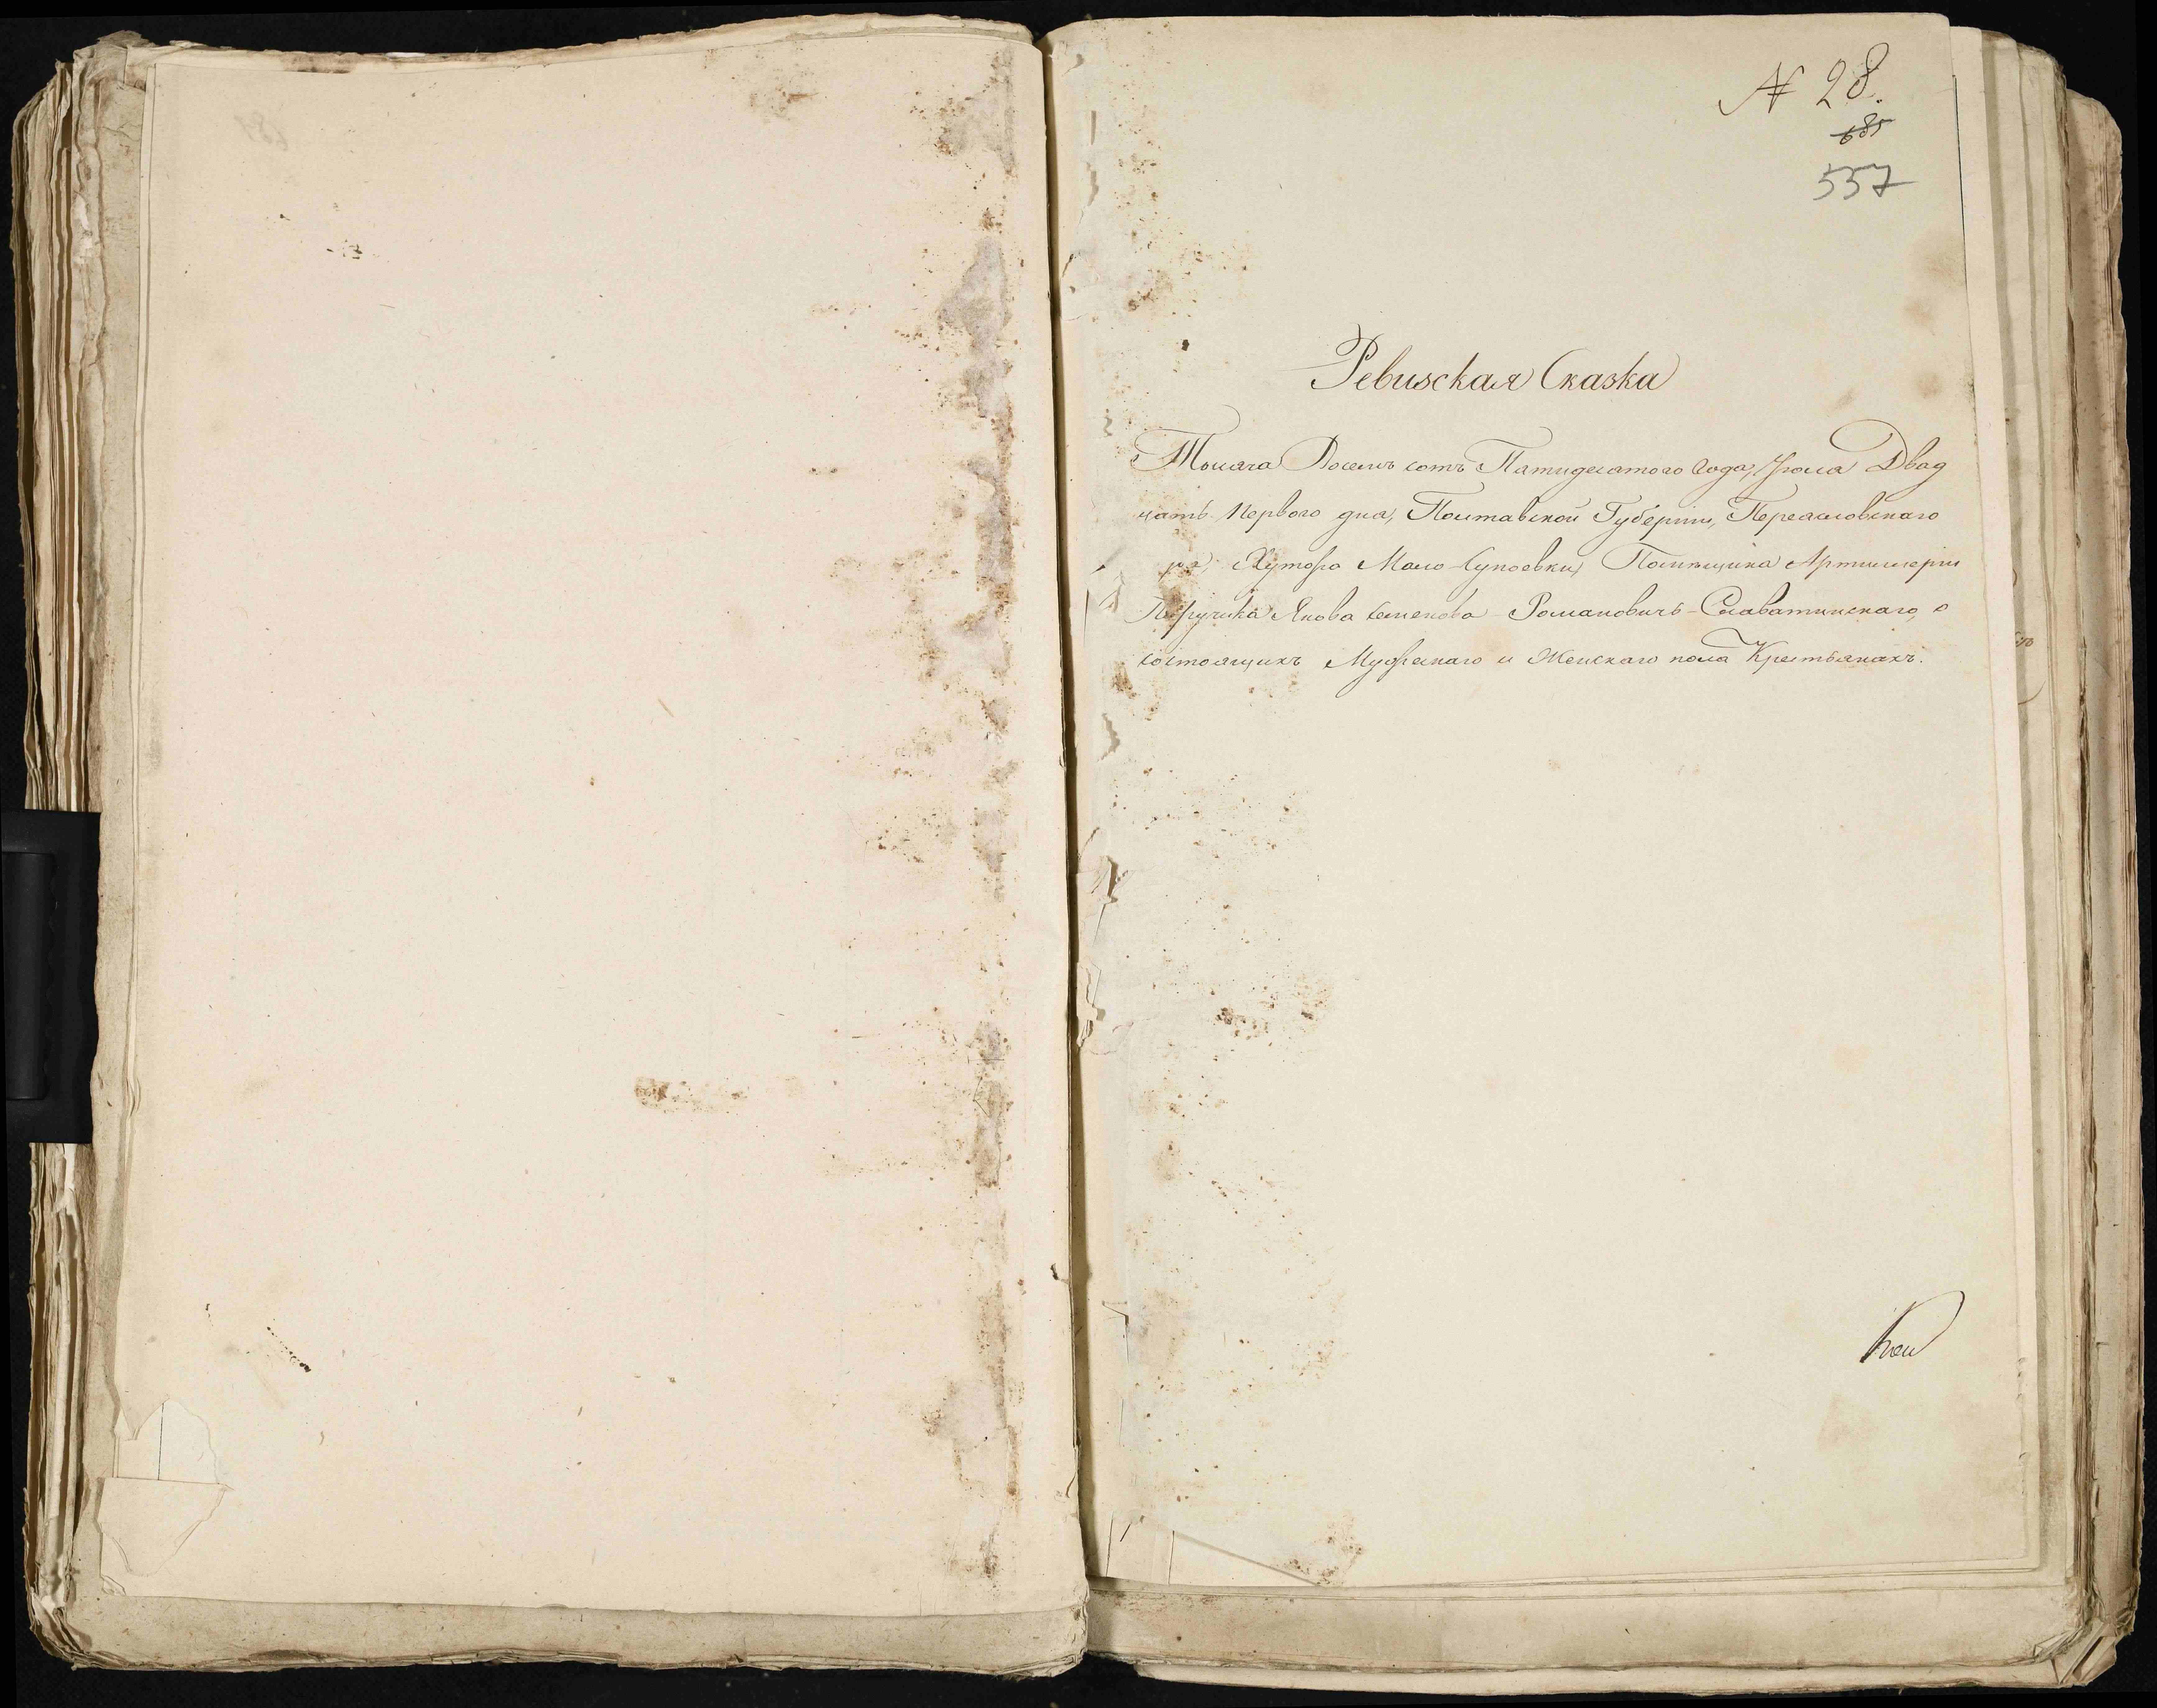 № 28.
685
557
Ревизская Сказка
Тысяча Восемь сотъ Пятидесятого Года, Двад
цать Первого дня, Полтавской Губерніи, Переясловскаго
Хутора Мало-Супоевки, Помѣщика Артиллеріи
Поручика Якова Семенова Романовичъ-Славатинскаго, о
состоящихъ Мужескаго и Женскаго пола Крестьянахъ.